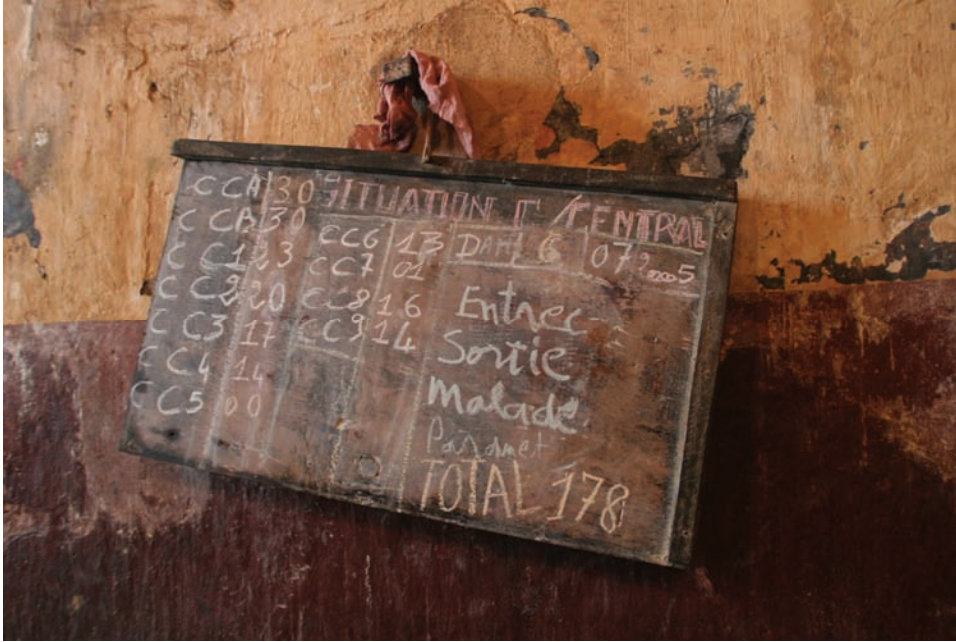 SITUATION C/CENTRAL
CCA 30
CCB 30
CC1 33
CC2 20
CC3 17
CC4 14
CC5 00
CC6 13
CC7 01
CC8 16
CC9 14
Entrec
Sortie
Malade
TOTAL 178